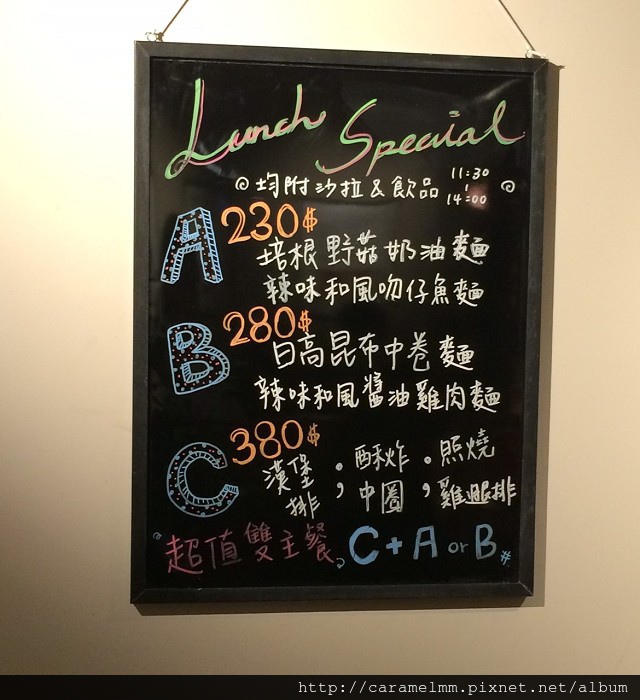 Lunch Special
@ 均附沙拉 & 飲品 11:30 | 14:00 @
A 230$
培根野菇奶油麵
辣味和風吻仔魚麵
B 280$
日高昆布中卷麵
辣味和風醬油雞肉麵
C 380$
漢堡排；酥炸中圈；照燒雞腿排
超值雙主餐 C + A or B #
http://caramelmm.pixnet.net/album